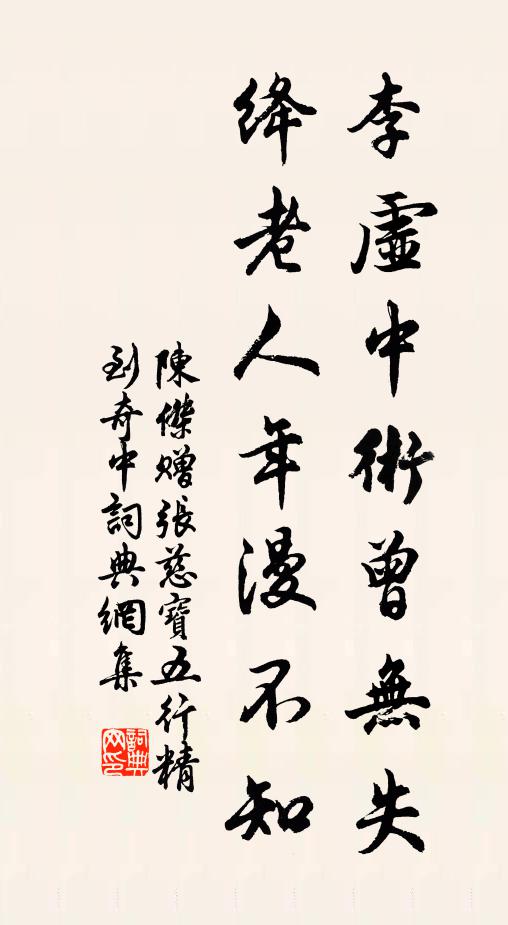 李虛中術曾無失
絳老人年漫不知
陳傑贈張慈寶五行精
到奇中詞典網集
詞典网印